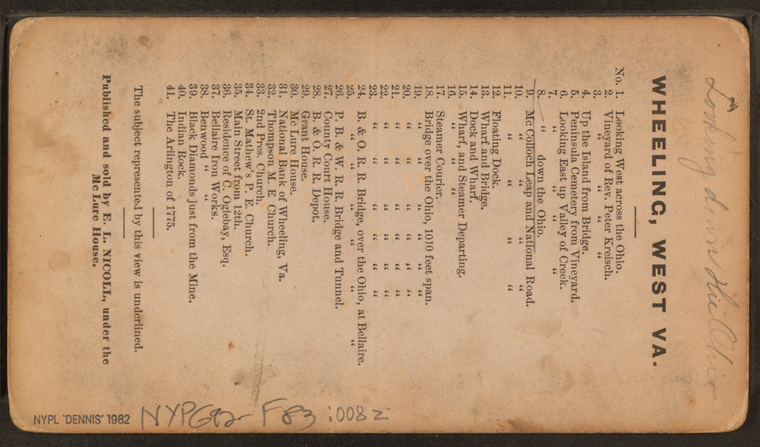 Looking down the Ohio
WHEELING, WEST VA.
No. 1. Looking West across the Ohio.
2. Vineyard of Rev. Peter Kreisch.
3. " " " "
4. Up the Island from Bridge.
5. Peninsula Cemetery from Vineyard.
6. Looking East up Valley of Creek.
7. " " " "
8. " down the Ohio.
9. Mc Colloch Leap and National Road.
10. " " " "
11. " " " "
12. Floating Dock.
13. Wharf and Bridge.
14. Dock and Wharf.
15. Wharf, and Steamer Departing.
16. " " "
17. Steamer Courier.
18. Bridge over the Ohio, 1010 feet span.
19. " " " " "
20. " " " " "
21. " " " " "
22. " " " " "
23. " " " " "
24. B. & O. R. R. Bridge, over the Ohio, at Bellaire.
25. " " " " "
26. P. B. & W. R. R. Bridge and Tunnel.
27. County Court House.
28. B. & O. R. R. Depot.
29. Grant House.
30. Mc Lure House.
31. National Bank of Wheeling, Va.
32. Thompson M. E. Church.
33. 2nd Pres. Church.
34. St. Mathew's P. E. Church.
35. Main Street from 12th.
36. Residence of C. Oglebay, Esq.
37. Bellaire Iron Works.
38. Benwood " "
39. Black Diamonds just from the Mine.
40. Indian Rock.
41. The Arlington of 1775.
The subject represented by this view is underlined.
Published and sold by E. L. NICOLL, under the
Mc Lure House.
NYPL 'DENNIS' 1982
NYPG82-F83:0082